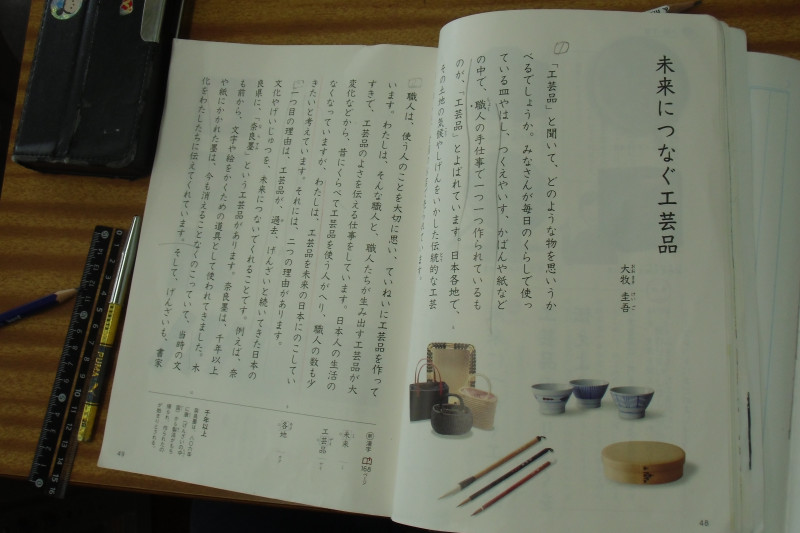 未来につなぐ工芸品
大牧 圭吾
おおまき けいご
1
「工芸品」と聞いて、どのような物を思いうか
べるでしょうか。みなさんが毎日のくらしで使っ
ている皿やはし、つくえやいす、かばんや紙など
の中で、職人の手仕事で一つ一つ作られているも
のが、「工芸品」とよばれています。日本各地で、
その土地の気候やしげんをいかした伝統的な工芸
48
職人は、使う人のことを大切に思い、ていねいに工芸品を作って
います。わたしは、そんな職人と、職人たちが生み出す工芸品が大
すきで、工芸品のよさを伝える仕事をしています。日本人の生活の
変化などから、昔にくらべて工芸品を使う人がへり、職人の数も少
なくなっていますが、わたしは、工芸品を未来の日本にのこしてい
きたいと考えています。それには、二つの理由があります。
一つ目の理由は、工芸品が、過去、げんざいと続いてきた日本の
文化やげいじゅつを、未来につないでくれることです。例えば、奈
良県に、「奈良墨」という工芸品があります。奈良墨は、千年以上
も前から、文字や絵をかくための道具として使われてきました。木
や紙にかかれた墨は、今も消えることなくのこっていて、当時の文
化をわたしたちに伝えてくれています。そして、げんざいも、書家
新漢字 155ページ
未来
工芸品
各地
千年以上
49
PUMA
0 1 2 3 4 5 6 7 8 9 10 11 12 13 14 15 16